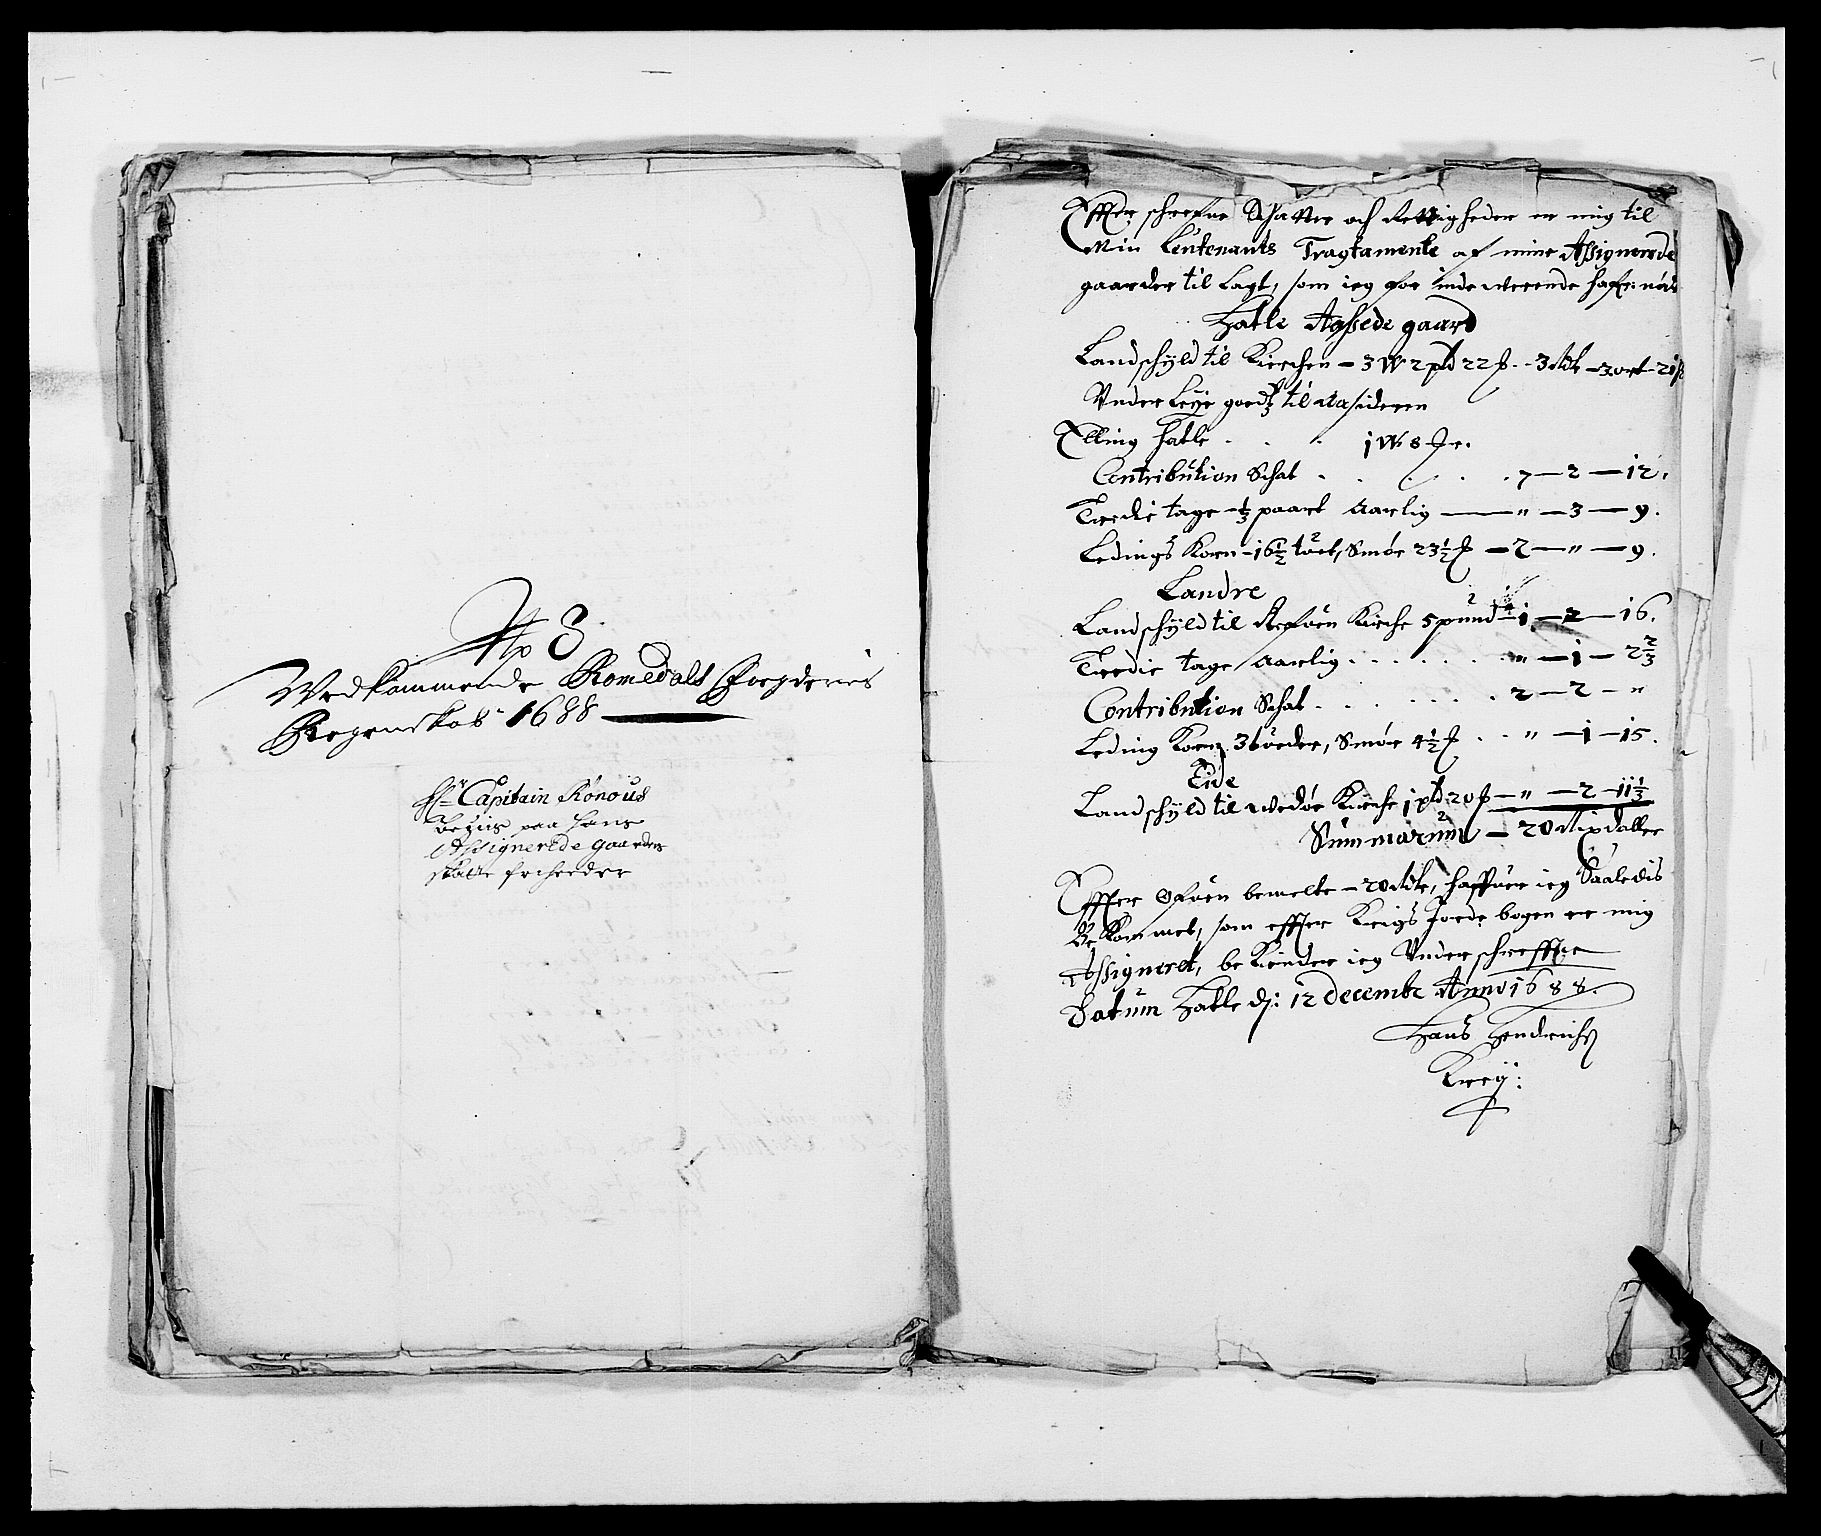 No 8
Vedkommende Romsdals Fogderies
Regenskab 1688
Hr Capitain Rönous
beviis paa hans
Assignerede gaarders
skatte
Effter schrefne Schatter och Rettigheder er mig til
Min Leutenants Tragtamente af mine Assignerede
gaarder til Lagt, som ieg for inde werende
Hatle Aassede gaard
Landschyld til Kirchen - 3 W 2 pd 22 - 3 Rdr - 3 ort - 21
Vnder Leye goedz til Aasideren
Elling Hatle . . . 1 W 8
Contribution Schat . . . . . 7 - 2 - 12.
Tredie tage - 1/3 paart Aarlig - " - 3 - 9.
Ledings Korn - 16 1/2 , Smør 23 1/2 - 2 - " - 9.
Landre
Landschyld til Kirche 5 pund - 1 - 2 - 16.
Tredie tage Aarlig . . . . . . " - 1 - 2 2/3
Contribution Schat . . . . . . . 2 - 2 - "
Leding Korn 3 , Smør 4 1/2 . . " - 1 - 15.
Eide
Landschyld til Wedøe Kirche 1 pd 20 - " - 2 - 11 1/3
Summarum - 20 Rixdaller
Effter Ofuen bemelte - 20 Rdr, haffuer ieg Saaledis
Bekommet, som effter Krigs Jorde bogen er mig
Assigneret, be Kiender ieg Vnderschreffne
Datum Hatle d: 12 decembr Anno 1688.
Hans Hendrichs